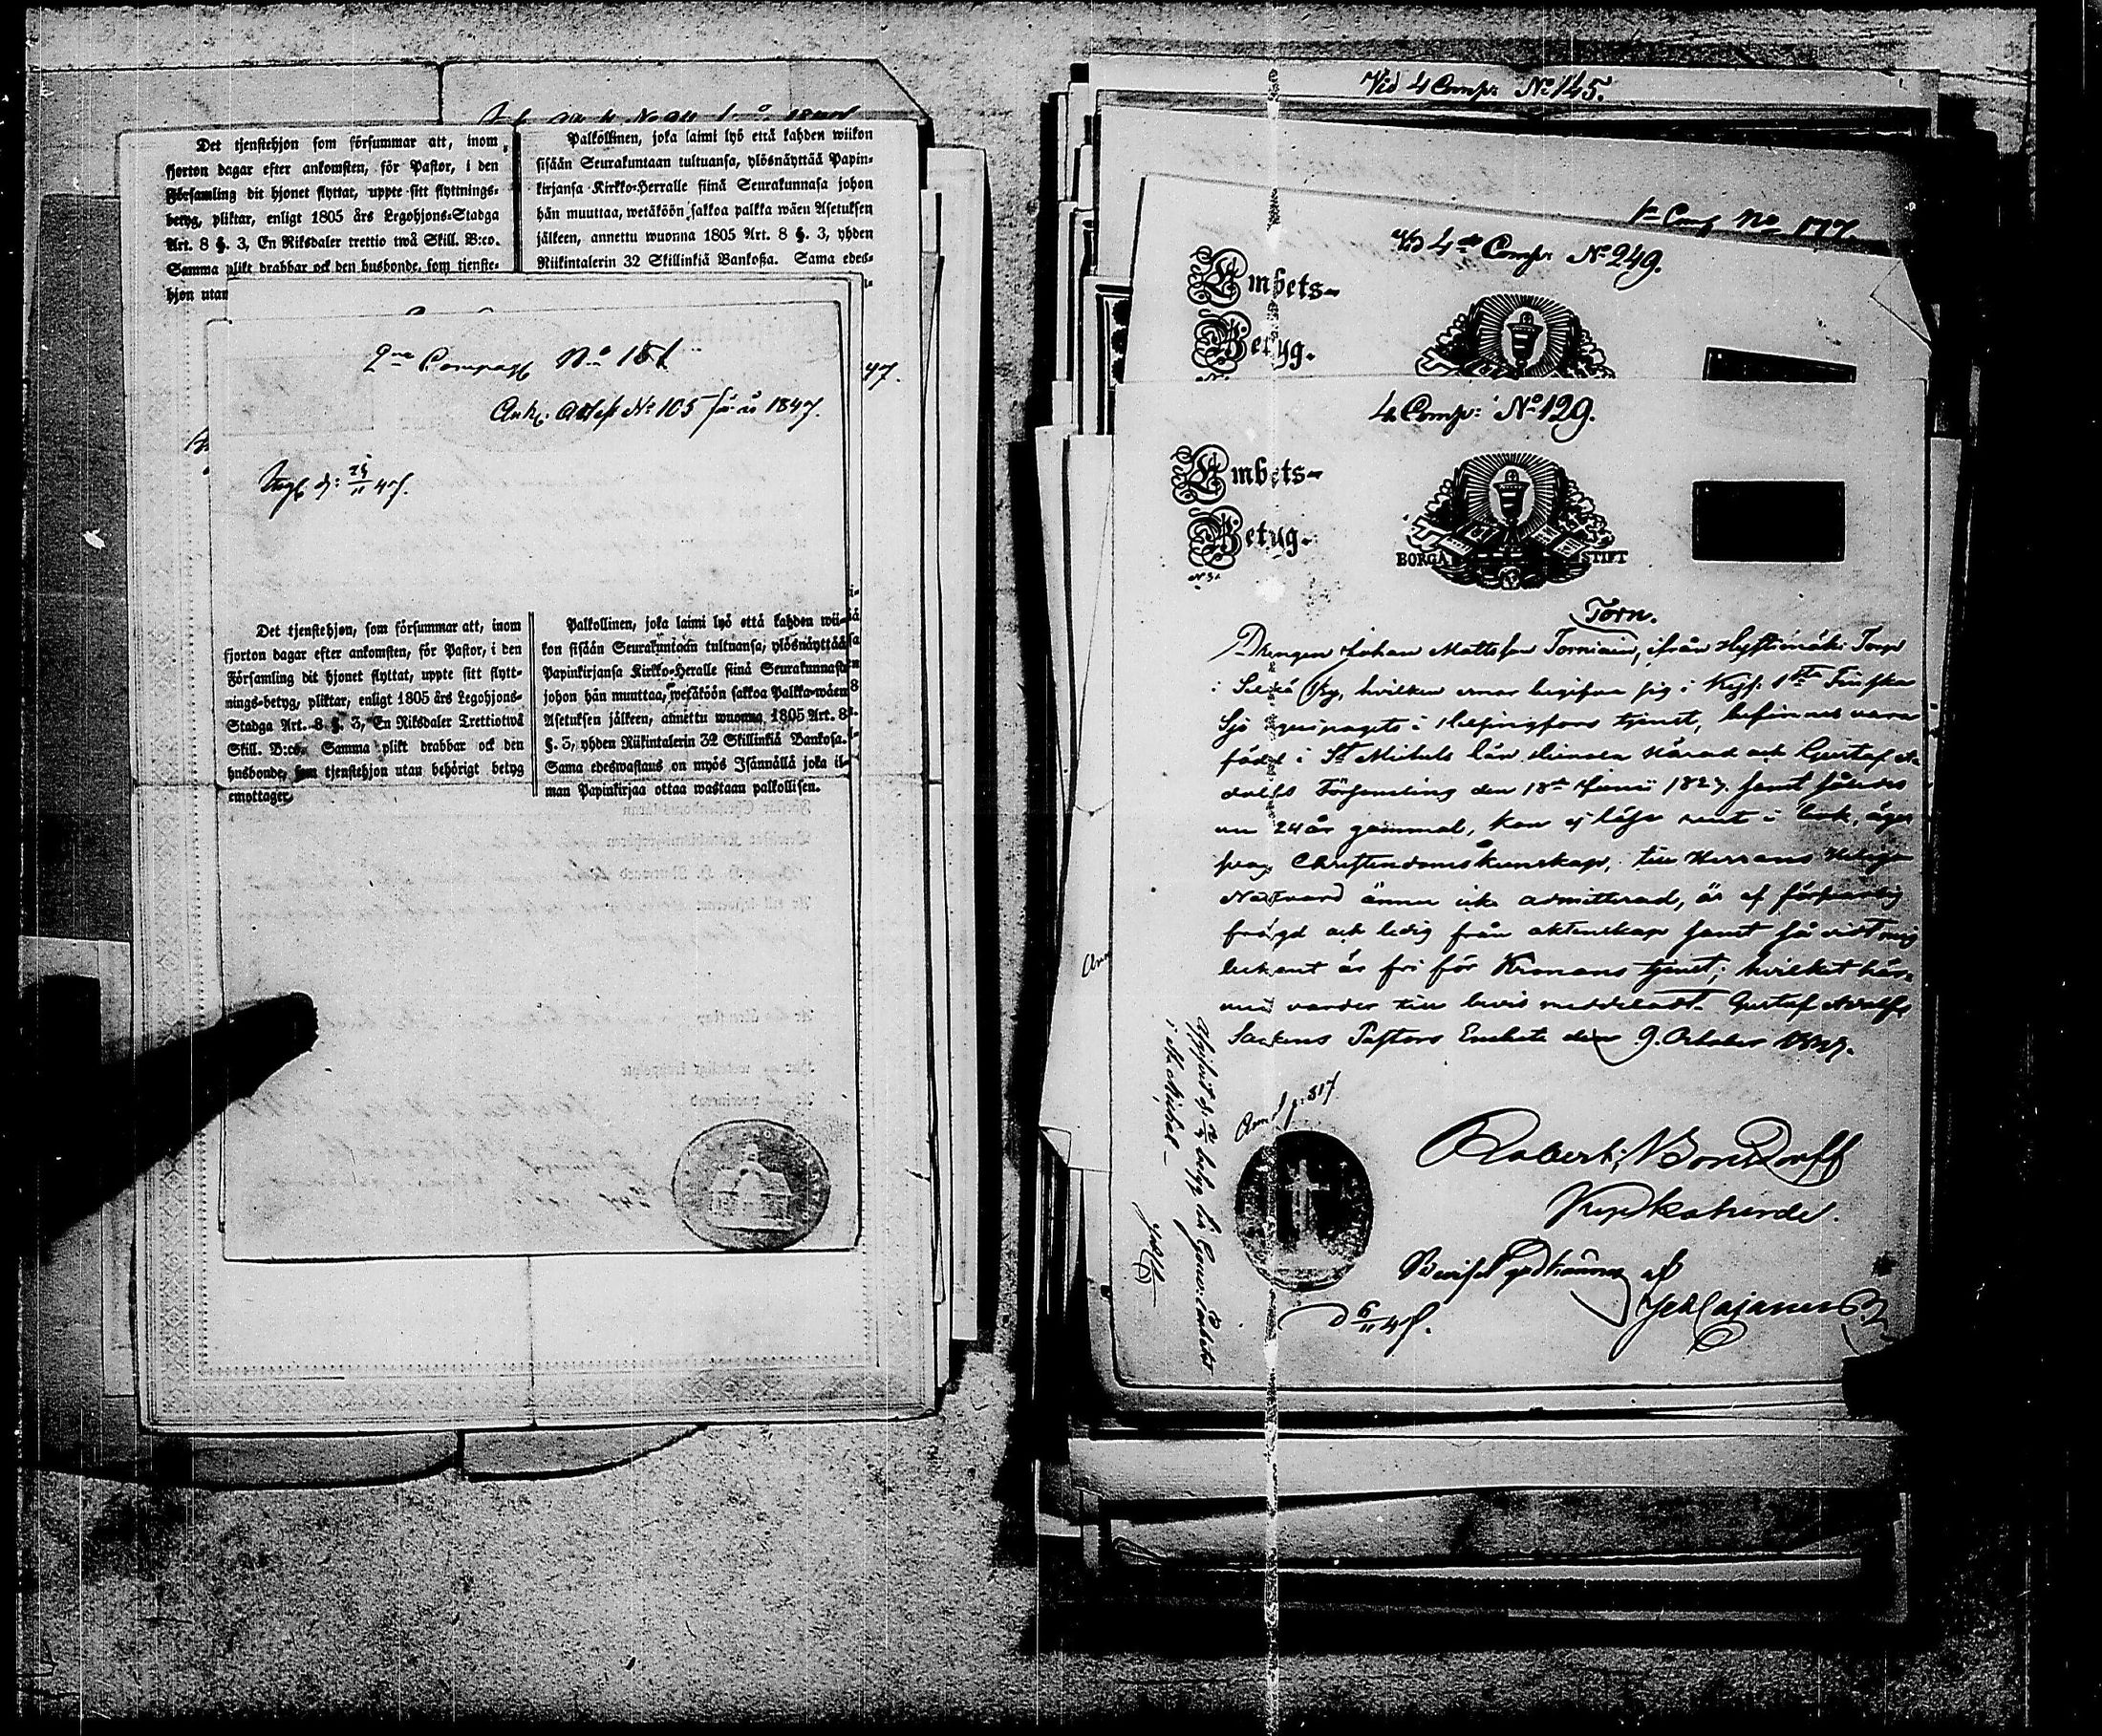 Det tjenstehjon som försummar att, inom
fjorton dagar efter ankomsten, för Pastor, i den
Församling dit hjonet flyttat, uppte sitt flyttnings-
betyg, pliktar, enligt 1805 års Legohjons-Stadga
Art. 8 §. 3, En Riksdaler trettio twå Skill. B:co.
Samma plikt drabbar ock den husbonde, som tjenste-
hjon utan
Palkollinen, joka laimi lyö että kahden wiikon
sisään Seurakuntaan tultuansa, ylösnäyttää Papin-
kirjansa Kirkko-Herralle siinä Seurakunnasa johon
hän muuttaa, wetäköön sakkoa palkka wäen Asetuksen
jälkeen, annettu wuonna 1805 Art. 8 §. 3, yhden
Riikintalerin 32 Skillinkiä Bankosa. Sama edes-
2ne Compag N:o 151
Ank. Attest No 105 för år 1847.
47.
Det tjenstehjon, som försummar att, inom
fjorton dagar efter ankomsten, för Pastor, i den
Församling dit hjonet flyttat, uppte sitt flytt-
nings-betyg, pliktar, enligt 1805 års Legohjons-
Stadga Art. 8 §. 3, En Riksdaler Trettiotwå
Skill. B:co. Samma plikt drabbar ock den
husbonde, som tjenstehjon utan behörigt betyg
emottager.
Palkollinen, joka laimi lyö että kahden wii-
kon sisään Seurakuntaan tultuansa, ylösnäyttää
Papinkirjansa Kirkko-Heralle siinä Seurakunnasa
johon hän muuttaa, wetäköön sakkoa Palkka-wäen
Asetuksen jälkeen, annettu wuonna 1805 Art. 8
§. 3, yhden Riikintalerin 32 Skillinkiä Bankosa.
Sama edeswastaus on myös Isännällä joka il-
man Papinkirjaa ottaa wastaan palkollisen.
Vid 4 Comp: No 145.
1e Comp No 177
Vid 4de Comp: No 249.
Embets-
Betyg.
4 Comp: No 129.
Embets-
Betyg.
N 3.
BORGÅ STIFT
Torn.
Drengen Johan Mattsson Torniain, ifrån Torp
i by, hvilken ernar begifva sig i Kejs: 1sta Finska
Sjö Equipagets i Helsingfors tjenst, befinnes vara
född i St Michels län härad och Gustaf A-
dolfs Församling den 18de Junii 1823 samt således
nu 24 år gammal, kan ej läsa rent i bok, äger
svag Christendomskunskap, till Herrans Heliga
Nattvard ännu icke admitterad, är af försvarlig
frägd och ledig från äktenskap samt så vidt mig
bekant är fri för Kronans tjenst; hvilket här-
med varder till bevis meddeladt. Gustaf Adolfs
Sockens Pastors Embete den 9. October 1847.
Robert Bonsdorff
Kyrkoherde.
Ann: p: 317
i St Michel
Beviset godkännes af
D 6/11 47.